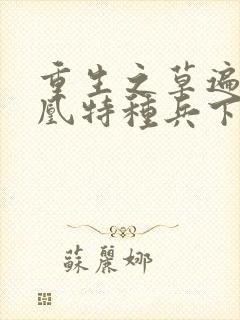 重生之草遍
凰特種兵下
蘇麗娜